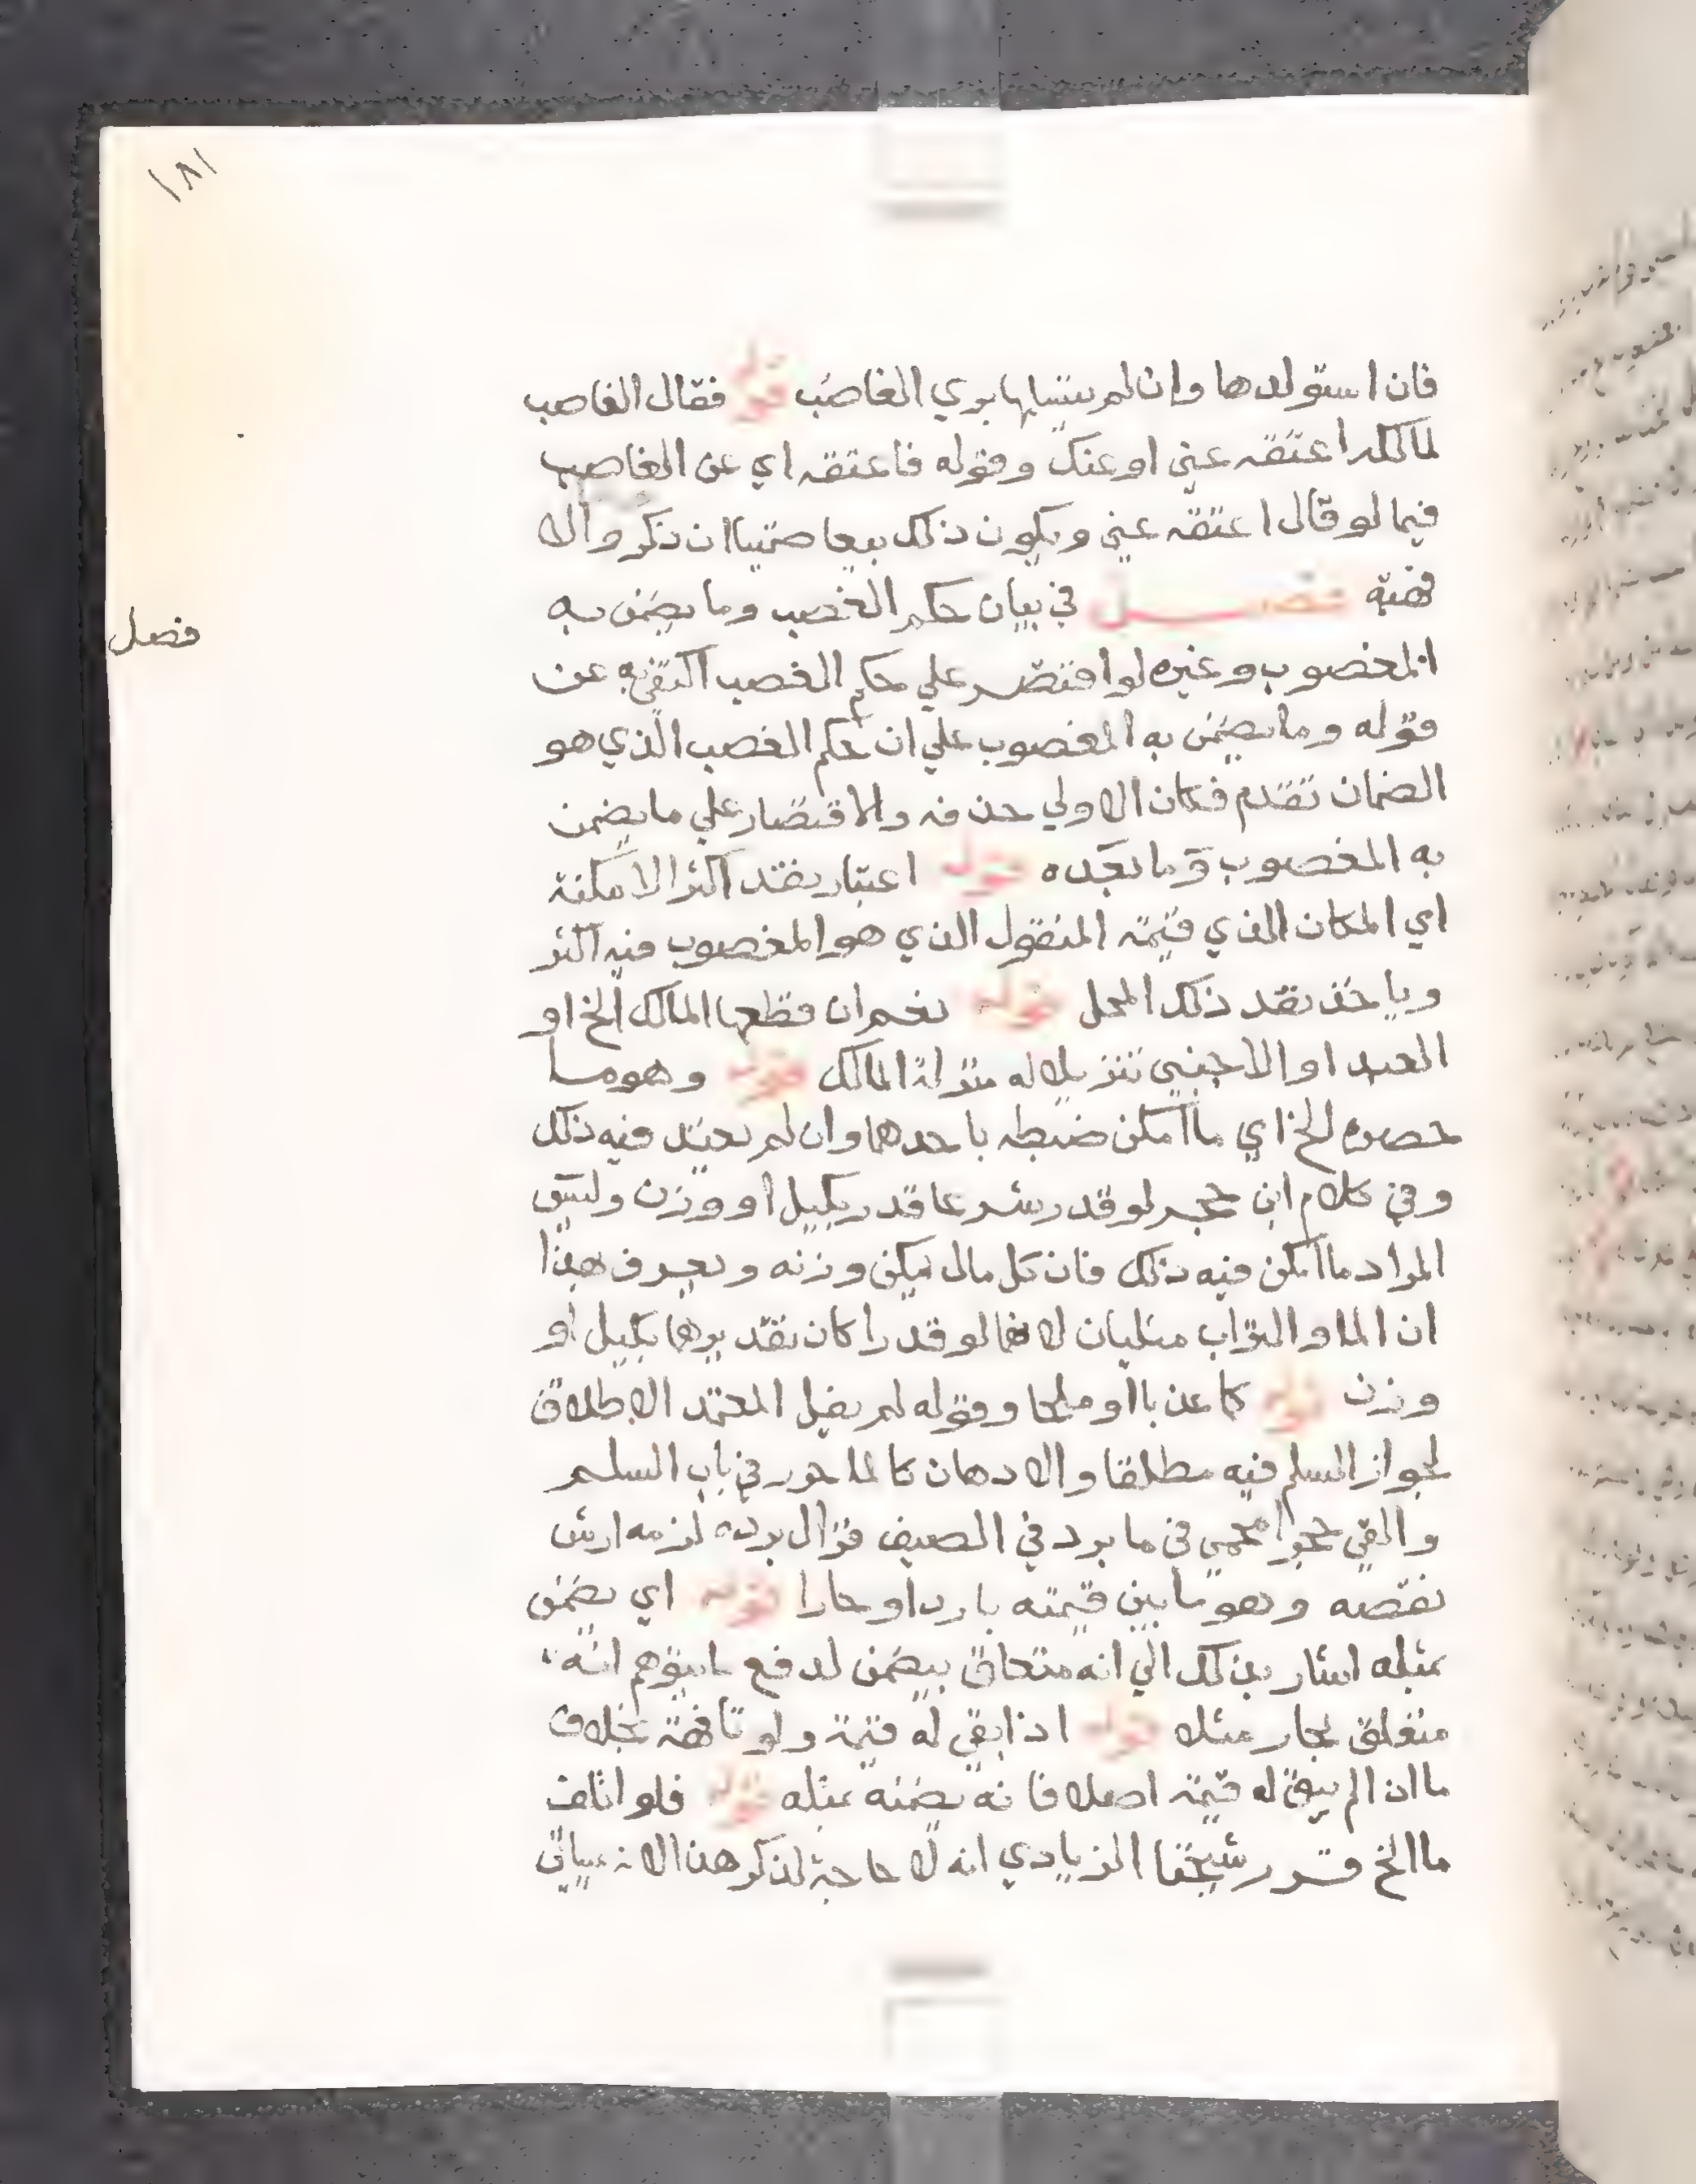 ١٨١
فان استولدها وان لم يتسلها بري الغاصب قوله فقال الغاصب
لمالكه اعتقه عني او عنك وقوله فاعتقه اي عن الغاصب
فيما لو قال اعتقه عني ويكون ذلك بيعا ضمنيا ان ذكر والا
فهبة فصل في بيان حكم الغصب وما يضمن به
فصل
المغصوب وغيره لو اقتصر علي حكم الغصب اكتفي به عن
قوله وما يضمن به المغصوب علي ان حكم الغصب الذي هو
الضمان تقدم فكان الاولي حذفه والاقتصار علي ما يضمن
به المغصوب وما بعده قوله اعتبار بنقد اكثر الامكنة
اي المكان الذي قيمة المنقول الذي هو المغصوب فيه اكثر
وياخذ نقد ذلك المحل قوله نعم ان قطعها المالك الخ او
العبد او الاجنبي تنزيلا له منزلة المالك قوله وهو ما
حصره الخ اي ما امكن ضبطه باحدهما وان لم يعتد فيه ذلك
وفي كلام ابن حجر لو قدر شرعا قدر بكيل او وزن وليس
المراد ما امكن فيه ذلك فان كل مال يمكن وزنه ويعرف هذا
ان الما والتراب مثليان لانهما لو قدرا كان تقديرهما بكيل او
وزن قوله كما عذبا او ملحا وقوله لم يغل المعتمد الاطلاق
لجواز السلم فيه مطلقا والادهان كالما حور في باب السلم
والقي حجرا محمي في ما برد في الصيف فزال برده لزمه ارش
نقصه وهو ما بين قيمته باردا وحارا قوله اي يضمن
بمثله اشار بذلك الي انه متعلق بيضمن لدفع ما يتوهم انه
متعلق بحار مثلا قوله اذا بقي له قيمة ولو تافهة بخلاف
ما اذا لم يبق له قيمة اصلا فانه يضمنه بمثله قوله فلو اتلف
ما الخ قرر شيخنا الزيادي انه لا حاجة لذكر هذا لانه سياتي